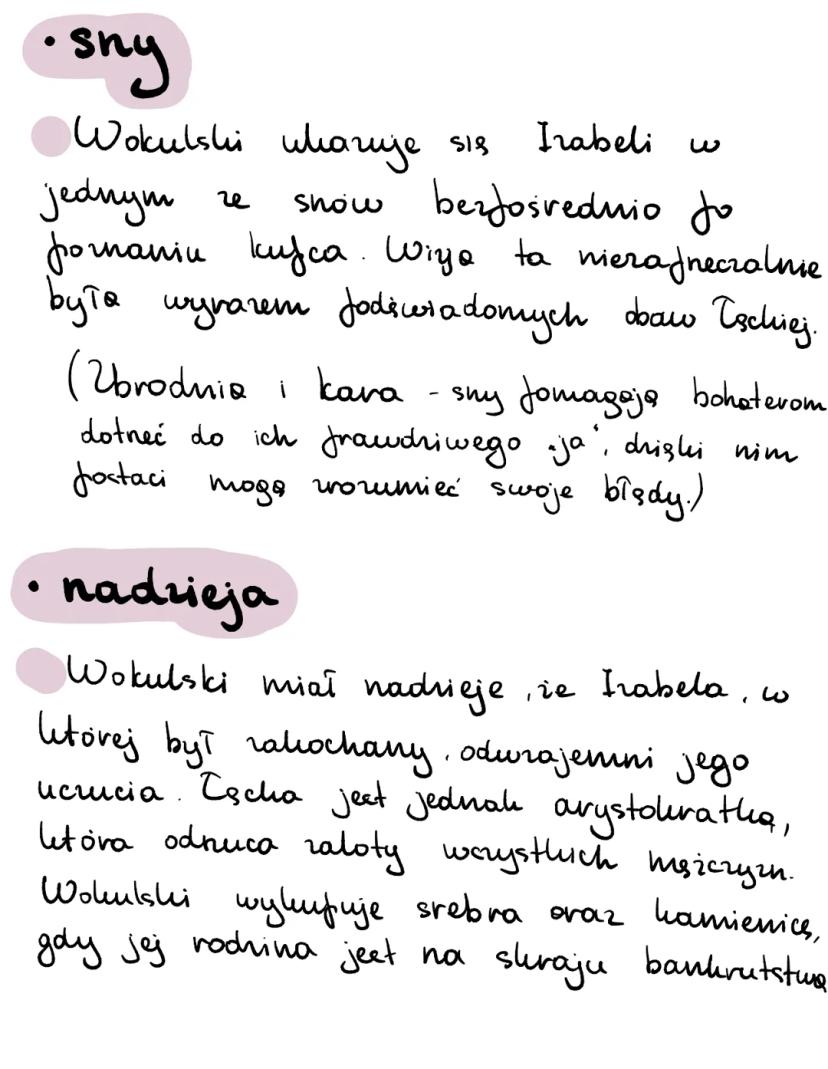 • sny
Wokulski ukazuje się Izabeli w
jednym ze snów bezpośrednio po
poznaniu kupca. Wizja ta niezaprzeczalnie
była wyrazem podświadomych obaw Łęckiej.
(Zbrodnia i kara - sny pomagają bohaterom
dotrzeć do ich prawdziwego "ja", dzięki nim
postaci mogą zrozumieć swoje błędy.)
• nadzieja
Wokulski miał nadzieje, że Izabela, w
której był zakochany, odwzajemni jego
uczucia. Łęcka jest jednak arystokratką,
która odrzuca zaloty wszystkich mężczyzn.
Wokulski wykupuje srebra oraz kamienicę,
gdy jej rodzina jest na skraju bankructwa